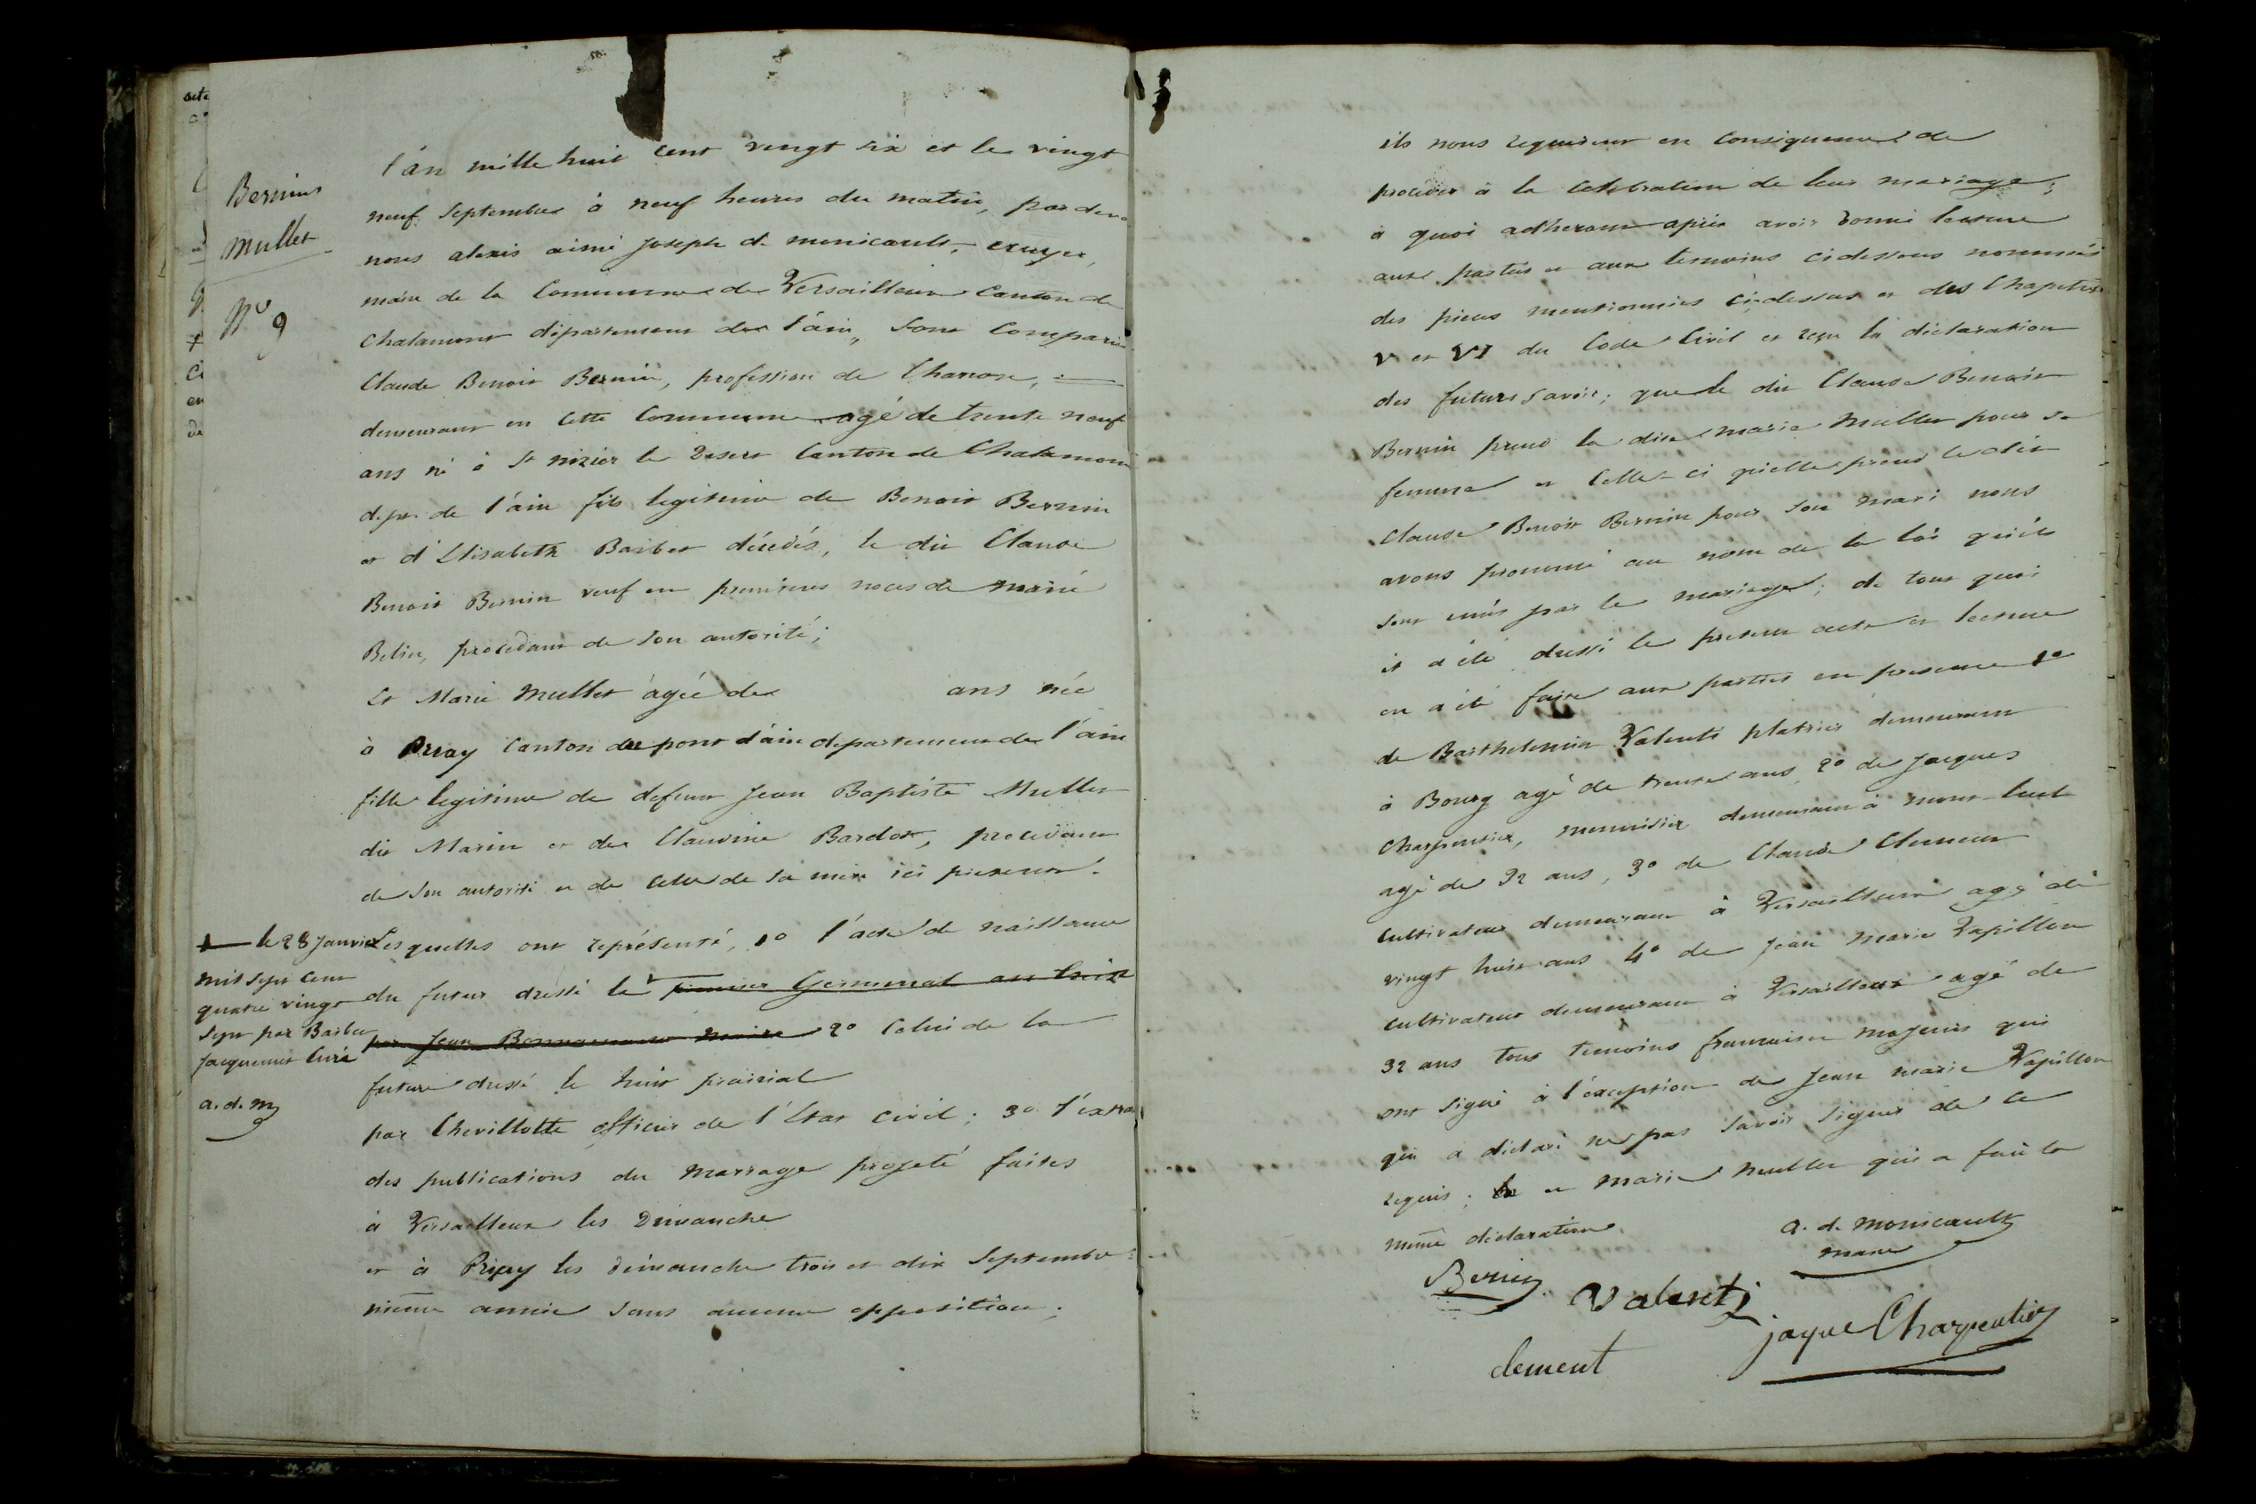 Bernin
Mullet
N° 9
l'an mille huit cent vingt six et le vingt
neuf Septembre à neuf heures du matin, par deva
nous alexis aimé joseph de monicault, ecuyer,
maire de la Commune de Versailleux Canton de
Chalamont département de l'ain, Sont Comparus
Claude Benoit Bernin, profession de Charon,
demeurant en cette Commune agé de trente neuf
ans né à St nizier le Desert Canton de Chalamont
dept. de l'ain fils legitime de Benoit Bernin
et d'Elisabeth Barbet décédés, le dit Claude
Benoit Bernin veuf en premieres noces de marie
Belin, procedant de son autorité;
Et Marie Mullet agée de ans née
à Priay Canton de pont d'ain departement de l'ain
fille legitime de defunt Jean Baptiste Mullet
dit Marin et de Claudine Bardot, procedant
de son autorité et de celle de sa mère ici presente.
Lesquelles ont représenté, 1° l'acte de naissance
du futur dressé le premier Germinal an huit
par Jean maire 2° Celui de la
future dressé le huit prairial
par Chevillotte officier de l'Etat civil; 3° l'extra
des publications du marriage projeté faites
à Versailleux les Dimanche
et à Priay les dimanche trois et dix Septembre
même année sans aucune opposition;
le 28 janvier
mil sept cent
quatre vingt
sept par Barbet
Jacquemet Curé
a. d. M
ils nous requierent en Consequence de
proceder à la Celebration de leur mariage;
à quoi adherant après avoir donné lecture
aux parties et aux temoins cidessous nommés
des pieces mentionnées ci-dessus et des Chapitres
V et VI du Code Civil et reçu la déclaration
des futurs savoir; que le dit Claude Benoit
Bernin prend la dite marie Mullet pour sa
femme et Celle-ci qu'elle prend le dit
Claude Benoit Bernin pour son mari nous
avons prononcé au nom de la loi qu'ils
sont unis par le mariage; de tout quoi
il a été dressé le présent acte et lecture
en a été faite aux parties en presence 1°
de Barthelemin Valenti platrier demeurant
à Bourg agé de trente ans, 2° de Jacques
Charpentier, menuisier demeurant à mont-luel
agé de 32 ans, 3° de Claude Clement
Cultivateur demeurant à Versailleux agé de
vingt huit ans 4° de Jean Marie Papillon
Cultivateur demeurant à Versailleux agé de
32 ans tous temoins français majeurs qui
ont signé à l'exception de Jean marie Papillon
qui a déclaré ne pas savoir signer de ce
requis; et marie Mullet qui a fait la
même déclaration
a. d. Monicault
maire
Bernin
Valenti
jaque Charpentier
clement